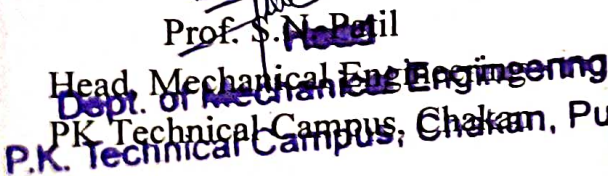 Prof. S.N. Patil
Head
Head, Mechanical Engineering
Dept. of Mechanical Engineering
PK Technical Campus, Chakan
P.K. Technical Campus, Chakan, Pu